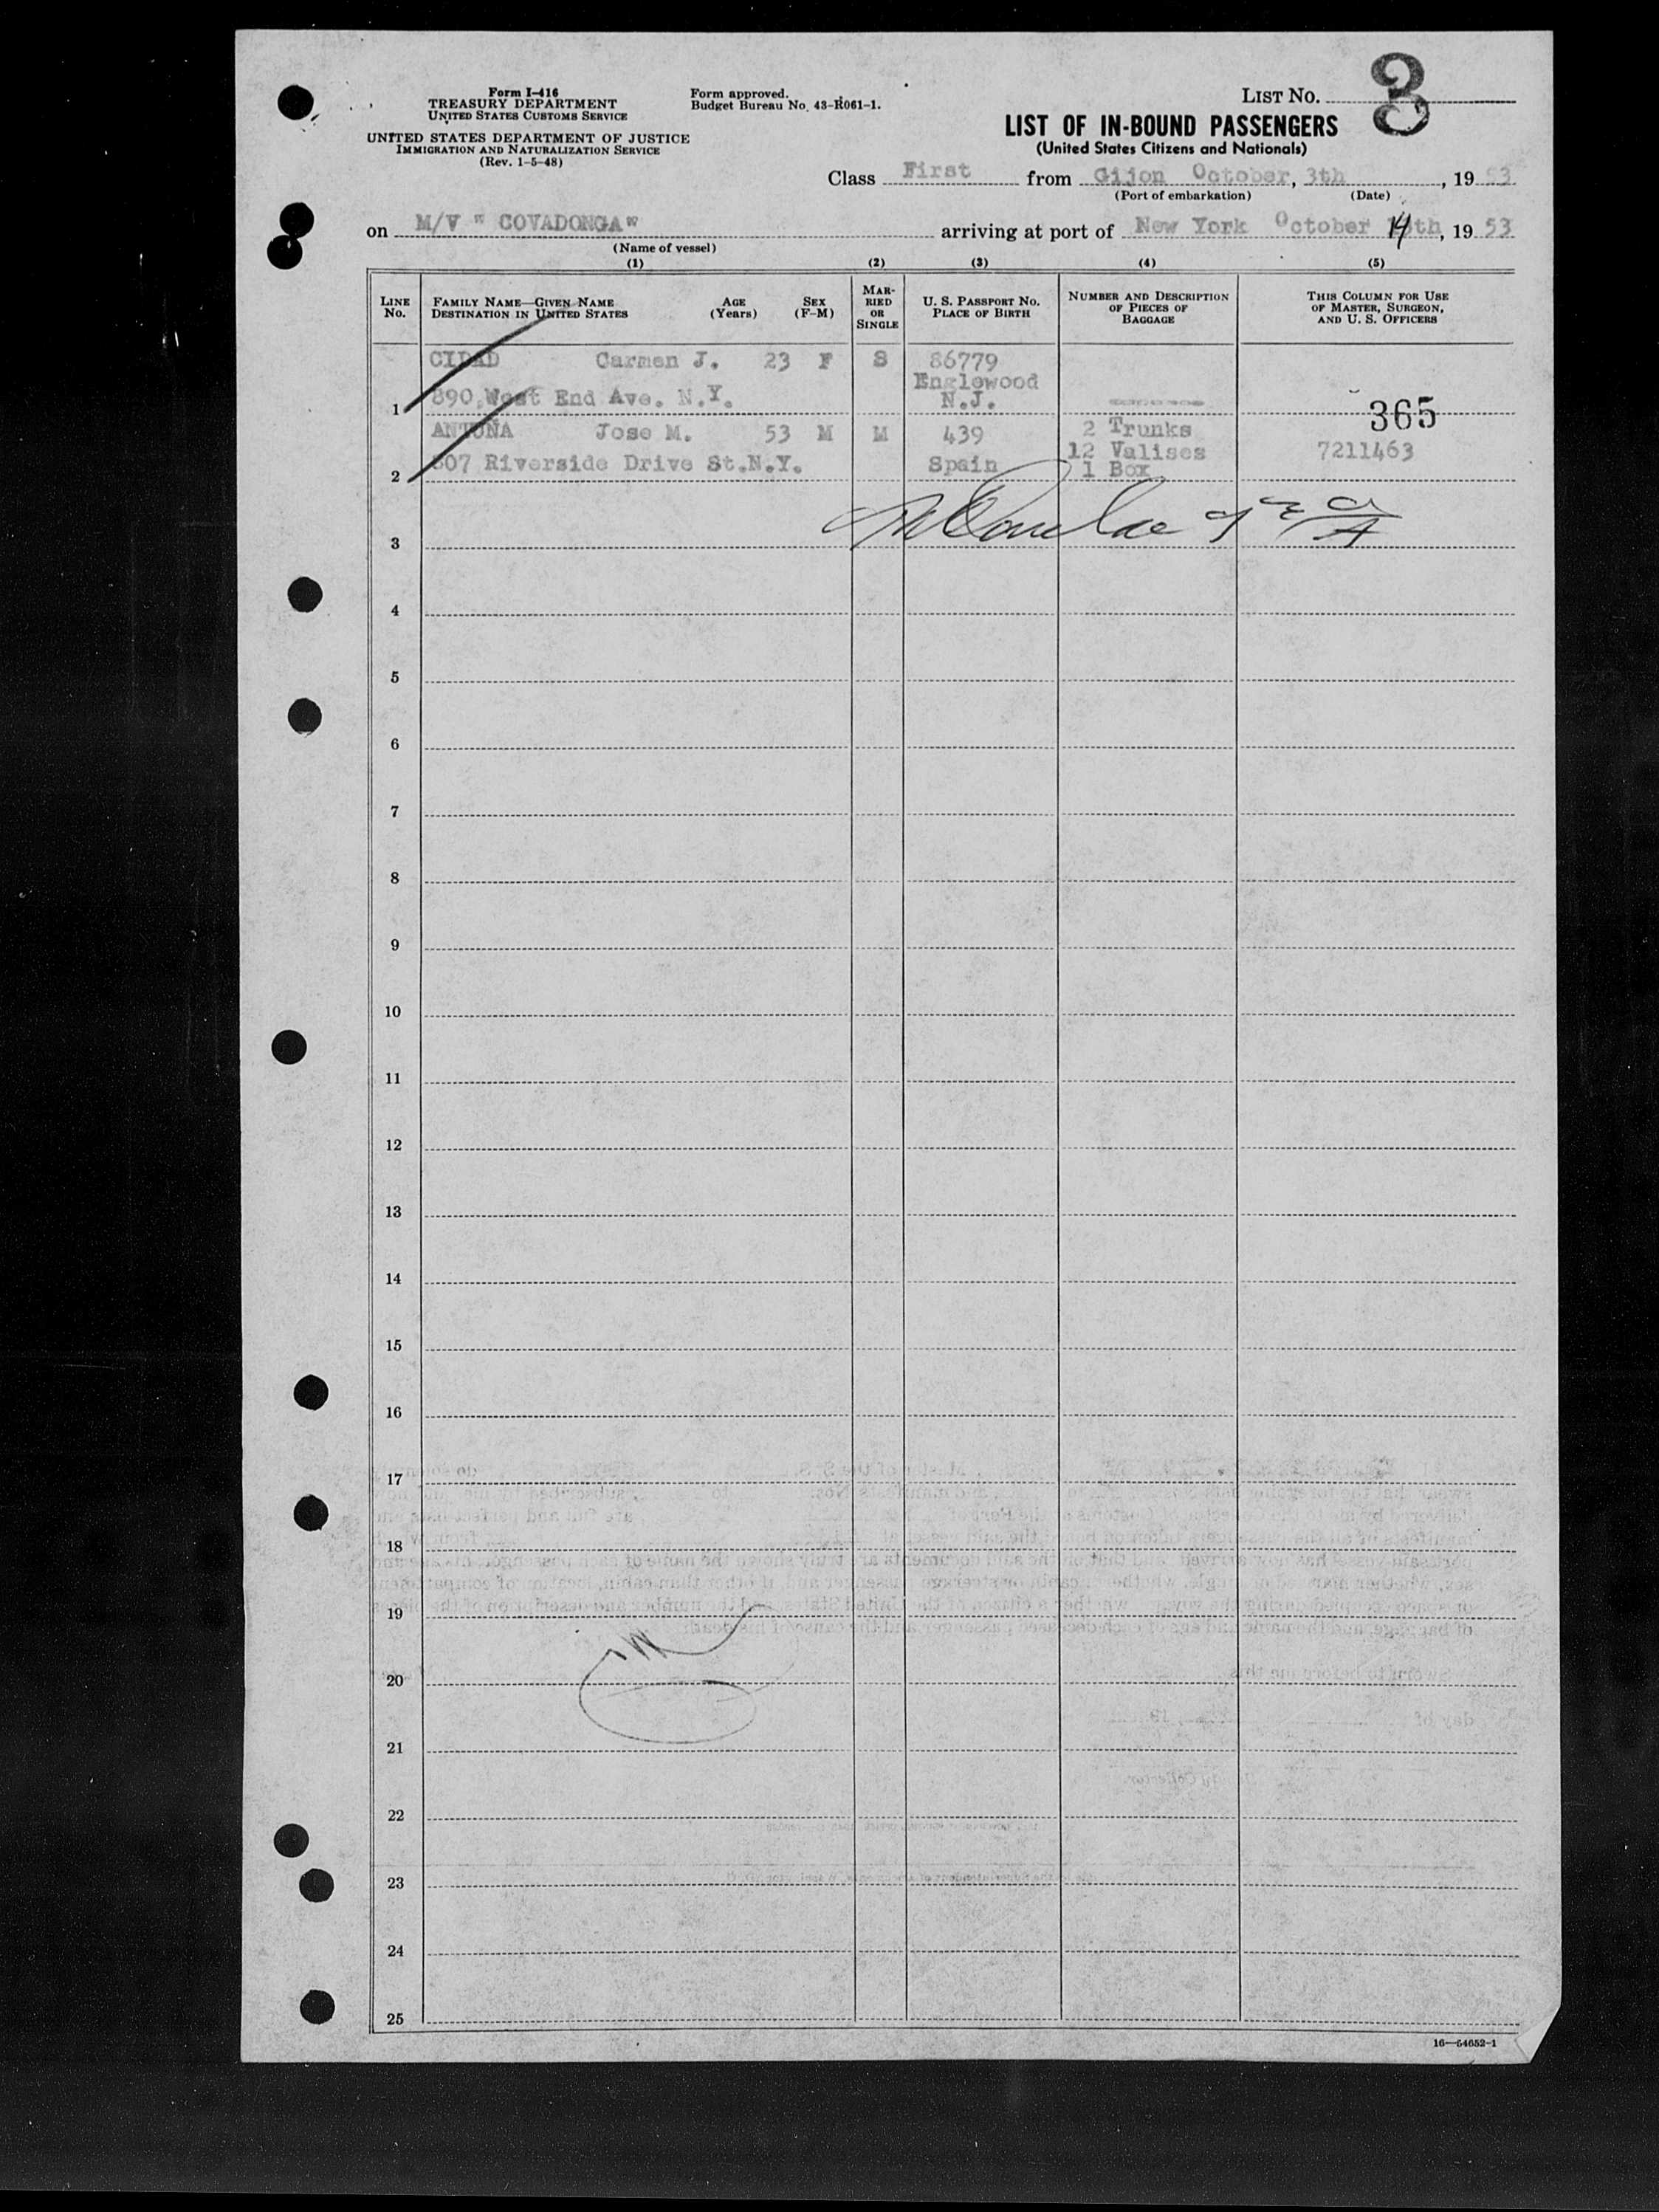 Form I-416
TREASURY DEPARTMENT
UNITED STATES CUSTOMS SERVICE
UNITED STATES DEPARTMENT OF JUSTICE
IMMIGRATION AND NATURALIZATION SERVICE
(Rev. 1-5-48)
Form approved.
Budget Bureau No. 43-R061-1.
LIST No. 3
LIST OF IN-BOUND PASSENGERS
(United States Citizens and Nationals)
Class First from Gijon October, 3th, 1953
(Port of embarkation) (Date)
on M/V " COVADONGA" arriving at port of New York October 14th, 1953
(Name of vessel)
(1) (2) (3) (4) (5)
LINE No.
FAMILY NAME—GIVEN NAME
DESTINATION IN UNITED STATES
AGE (Years)
SEX (F-M)
MARRIED OR SINGLE
U. S. PASSPORT NO.
PLACE OF BIRTH
NUMBER AND DESCRIPTION OF PIECES OF BAGGAGE
THIS COLUMN FOR USE OF MASTER, SURGEON, AND U. S. OFFICERS
CIDAD Carmen J. 23 F S 86779
Englewood
1 890 West End Ave. N.Y. N.J. 365
ANTUÑA Jose M. 53 M M 439 2 Trunks
12 Valises 7211463
2 807 Riverside Drive St.N.Y. Spain 1 Box
3
4
5
6
7
8
9
10
11
12
13
14
15
16
17
18
19
20
21
22
23
24
25
16—54652-1